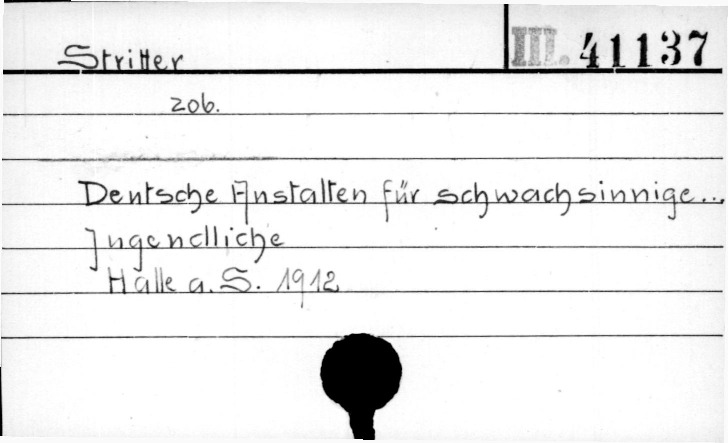 Stritter
III. 41137
zob.
Deutsche Anstalten für schwachsinnige...
Jugendliche
Halle a. S. 1912